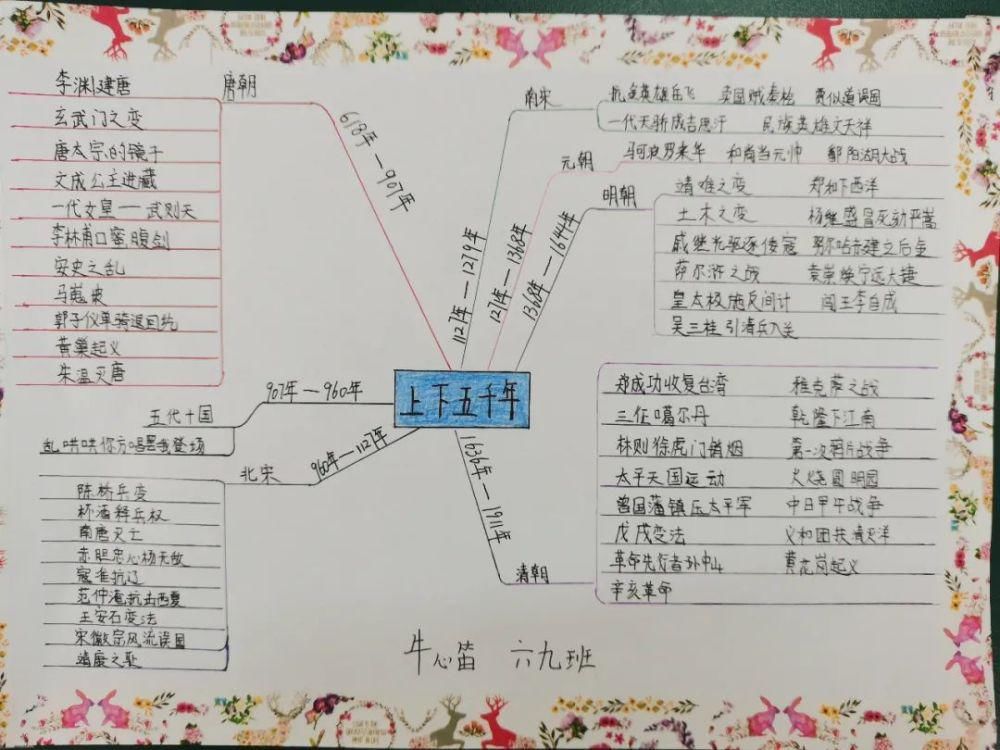 上下五千年
618年—907年
唐朝
李渊建唐
玄武门之变
唐太宗的镜子
文成公主进藏
一代女皇——武则天
李林甫口蜜腹剑
安史之乱
马嵬坡
郭子仪单骑退回纥
黄巢起义
朱温灭唐
907年—960年
五代十国
乱哄哄你方唱罢我登场
960年—1127年
北宋
陈桥兵变
杯酒释兵权
南唐灭亡
赤胆忠心杨无敌
寇准抗辽
范仲淹抗击西夏
王安石变法
宋徽宗风流误国
靖康之耻
1127年—1279年
南宋
抗金英雄岳飞 卖国贼秦桧 贾似道误国
一代天骄成吉思汗 民族英雄文天祥
1271年—1368年
元朝
马可波罗来华 和尚当元帅 鄱阳湖大战
1368年—1644年
明朝
靖难之变 郑和下西洋
土木之变 杨继盛冒死劾严嵩
戚继光驱逐倭寇 努尔哈赤建立后金
萨尔浒之战 袁崇焕宁远大捷
皇太极施反间计 闯王李自成
吴三桂引清兵入关
1636年—1911年
清朝
郑成功收复台湾 雅克萨之战
三征噶尔丹 乾隆下江南
林则徐虎门销烟 第一次鸦片战争
太平天国运动 火烧圆明园
曾国藩镇压太平军 中日甲午战争
戊戌变法 义和团扶清灭洋
革命先行者孙中山 黄花岗起义
辛亥革命
牛心笛 六九班